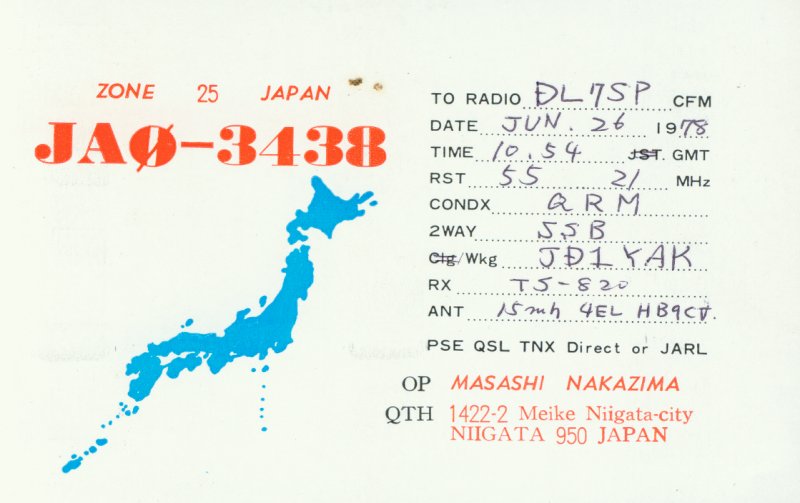 ZONE 25 JAPAN
JAØ-3438
TO RADIO ĐL7SP CFM
DATE JUN. 26 1978
TIME 10.54 JST. GMT
RST 55 21 MHz
CONDX QRM
2WAY SSB
Clg/Wkg JĐ1YAK
RX TS-820
ANT 15mh 4EL HB9CV.
PSE QSL TNX Direct or JARL
OP MASASHI NAKAZIMA
QTH 1422-2 Meike Niigata-city
NIIGATA 950 JAPAN